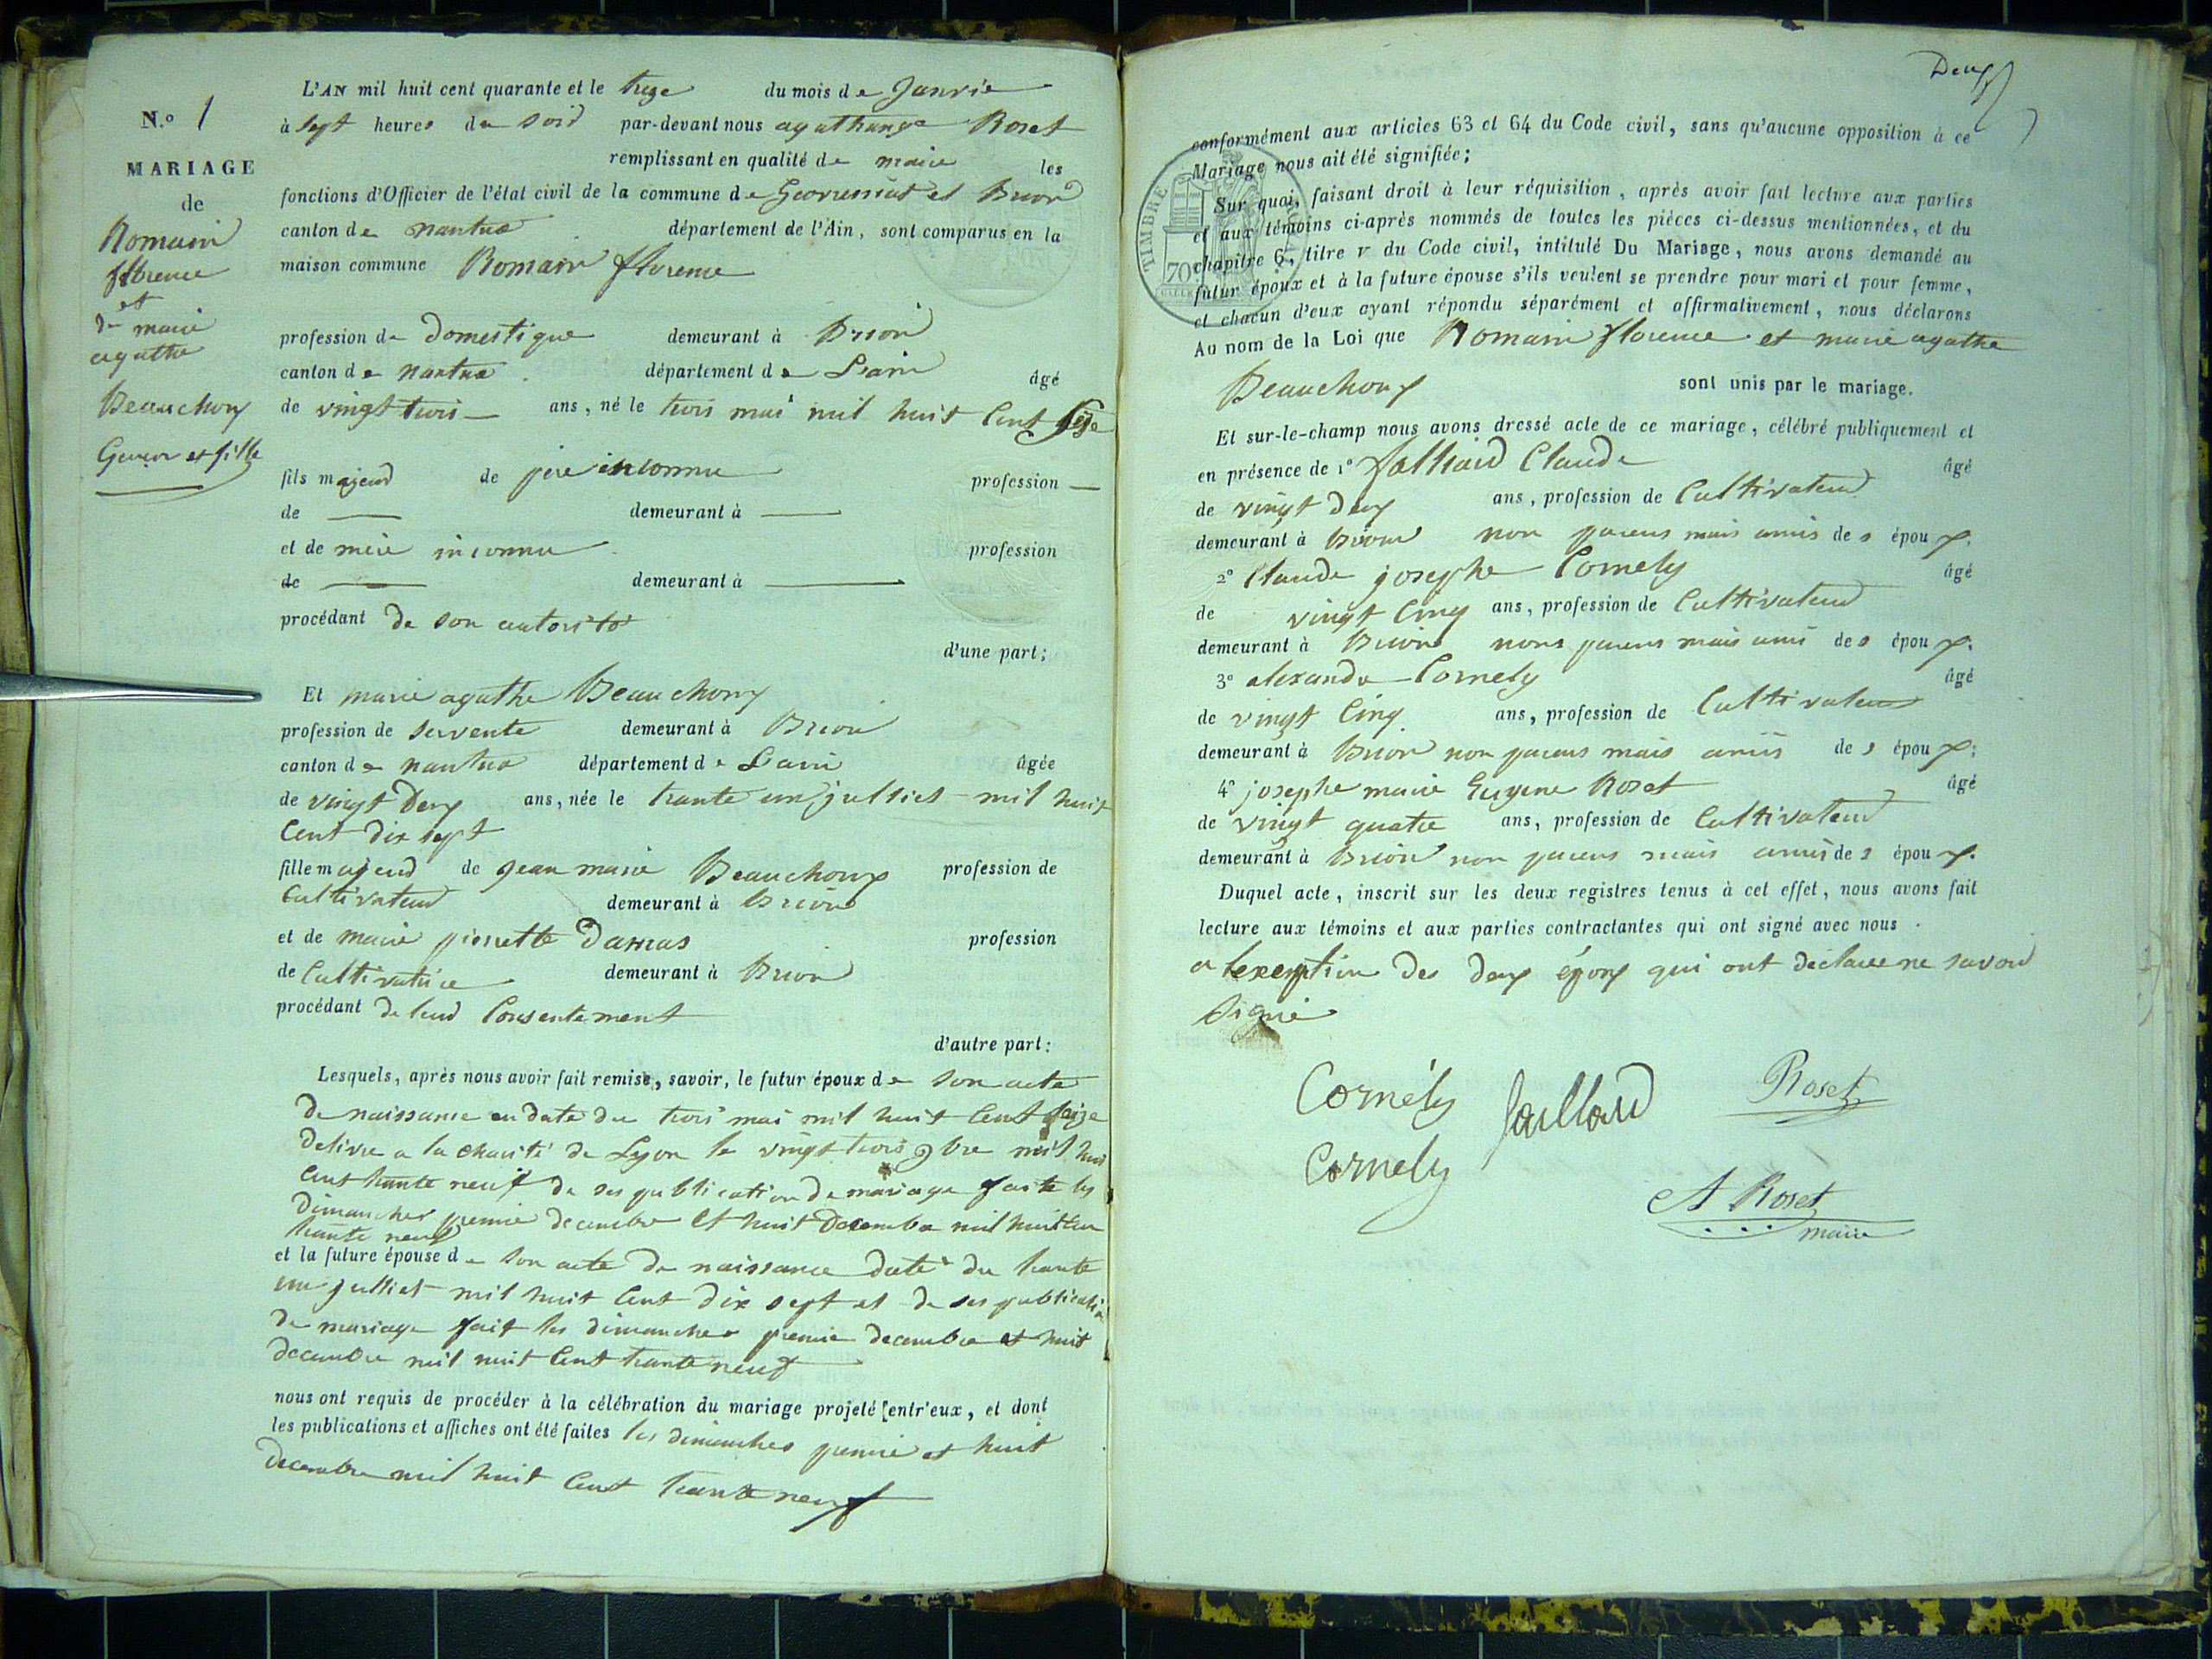 N.º 1
MARIAGE
de
Romain
florence
et
de marie
agathe
Beauchoux
Garçon et fille
L'AN mil huit cent quarante et le treze du mois de Janvie
à sept heures du soir par-devant nous agathange Roset
remplissant en qualité de maire les
fonctions d'Officier de l'état civil de la commune de Geovressiat et Brion
canton de nantua département de l'Ain, sont comparus en la
maison commune Romain florence
profession de Domestique demeurant à Brion
canton de Nantua département de Lain âgé
de vingt trois ans, né le trois mai mil huit Cent seize
fils majeur de père inconnu profession
de demeurant à
et de mère inconnu profession
de demeurant à
procédant de son autorité
d'une part;
Et marie agathe Beauchoux
profession de servente demeurant à Brion
canton de nantua département de Lain âgée
de vingt Deux ans, née le trante un julliet mil huit
Cent dix sept
fille majeur de Jean marie Beauchoux profession de
Cultivateur demeurant à Brion
et de marie pierrette Damas profession
de Cultivatrice demeurant à Brion
procédant de leur Consentement
d'autre part:
Lesquels, après nous avoir fait remise, savoir, le futur époux de son acte
de naissance en date du trois mai mil huit Cent seize
delivre a la charité de Lyon le vingt trois 9bre mil hui
Cent trante neuf de ses publication de mariage faite les
dimanches premie decembre Et huit Decembre mil huit Cen
trante neuf
et la future épouse de son acte de naissance daté du trante
un julliet mil huit Cent dix sept et de ses publication
de mariage fait les dimanches premie decembre et huit
decembre mil huit Cent trante neuf
nous ont requis de procéder à la célébration du mariage projeté entr'eux, et dont
les publications et affiches ont été faites les dimanches premie et huit
decembre mil huit Cent trante neuf
Deux
conformément aux articles 63 et 64 du Code civil, sans qu'aucune opposition à ce
Mariage nous ait été signifiée;
TIMBRE ROYAL
70
Sur quoi, faisant droit à leur réquisition, après avoir fait lecture aux parties
et aux témoins ci-après nommés de toutes les pièces ci-dessus mentionnées, et du
chapitre 6, titre v du Code civil, intitulé Du Mariage, nous avons demandé au
futur époux et à la future épouse s'ils veulent se prendre pour mari et pour femme,
et chacun d'eux ayant répondu séparément et affirmativement, nous déclarons
Au nom de la Loi que Romain florence et marie agathe
Beauchoux sont unis par le mariage.
Et sur-le-champ nous avons dressé acte de ce mariage, célébré publiquement et
en présence de 1º Jalliard Claude âgé
de vingt deux ans, profession de Cultivateur
demeurant à Brion non parens mais amis des époux.
2º Claude josephe Cornely âgé
de vingt Cinq ans, profession de Cultivateur
demeurant à Brion nons parens mais ami des époux.
3º alexandre Cornely âgé
de vingt Cinq ans, profession de Cultivateur
demeurant à Brion non parens mais amis des époux;
4º josephe marie Eugene Roset âgé
de vingt quatre ans, profession de Cultivateur
demeurant à Brion non parens mais amis des époux.
Duquel acte, inscrit sur les deux registres tenus à cet effet, nous avons fait
lecture aux témoins et aux parties contractantes qui ont signé avec nous.
a lexeption des deux époux qui ont déclaree ne savoir
signé
Cornély Jaillard Roset
Cornely
A Roset
maire